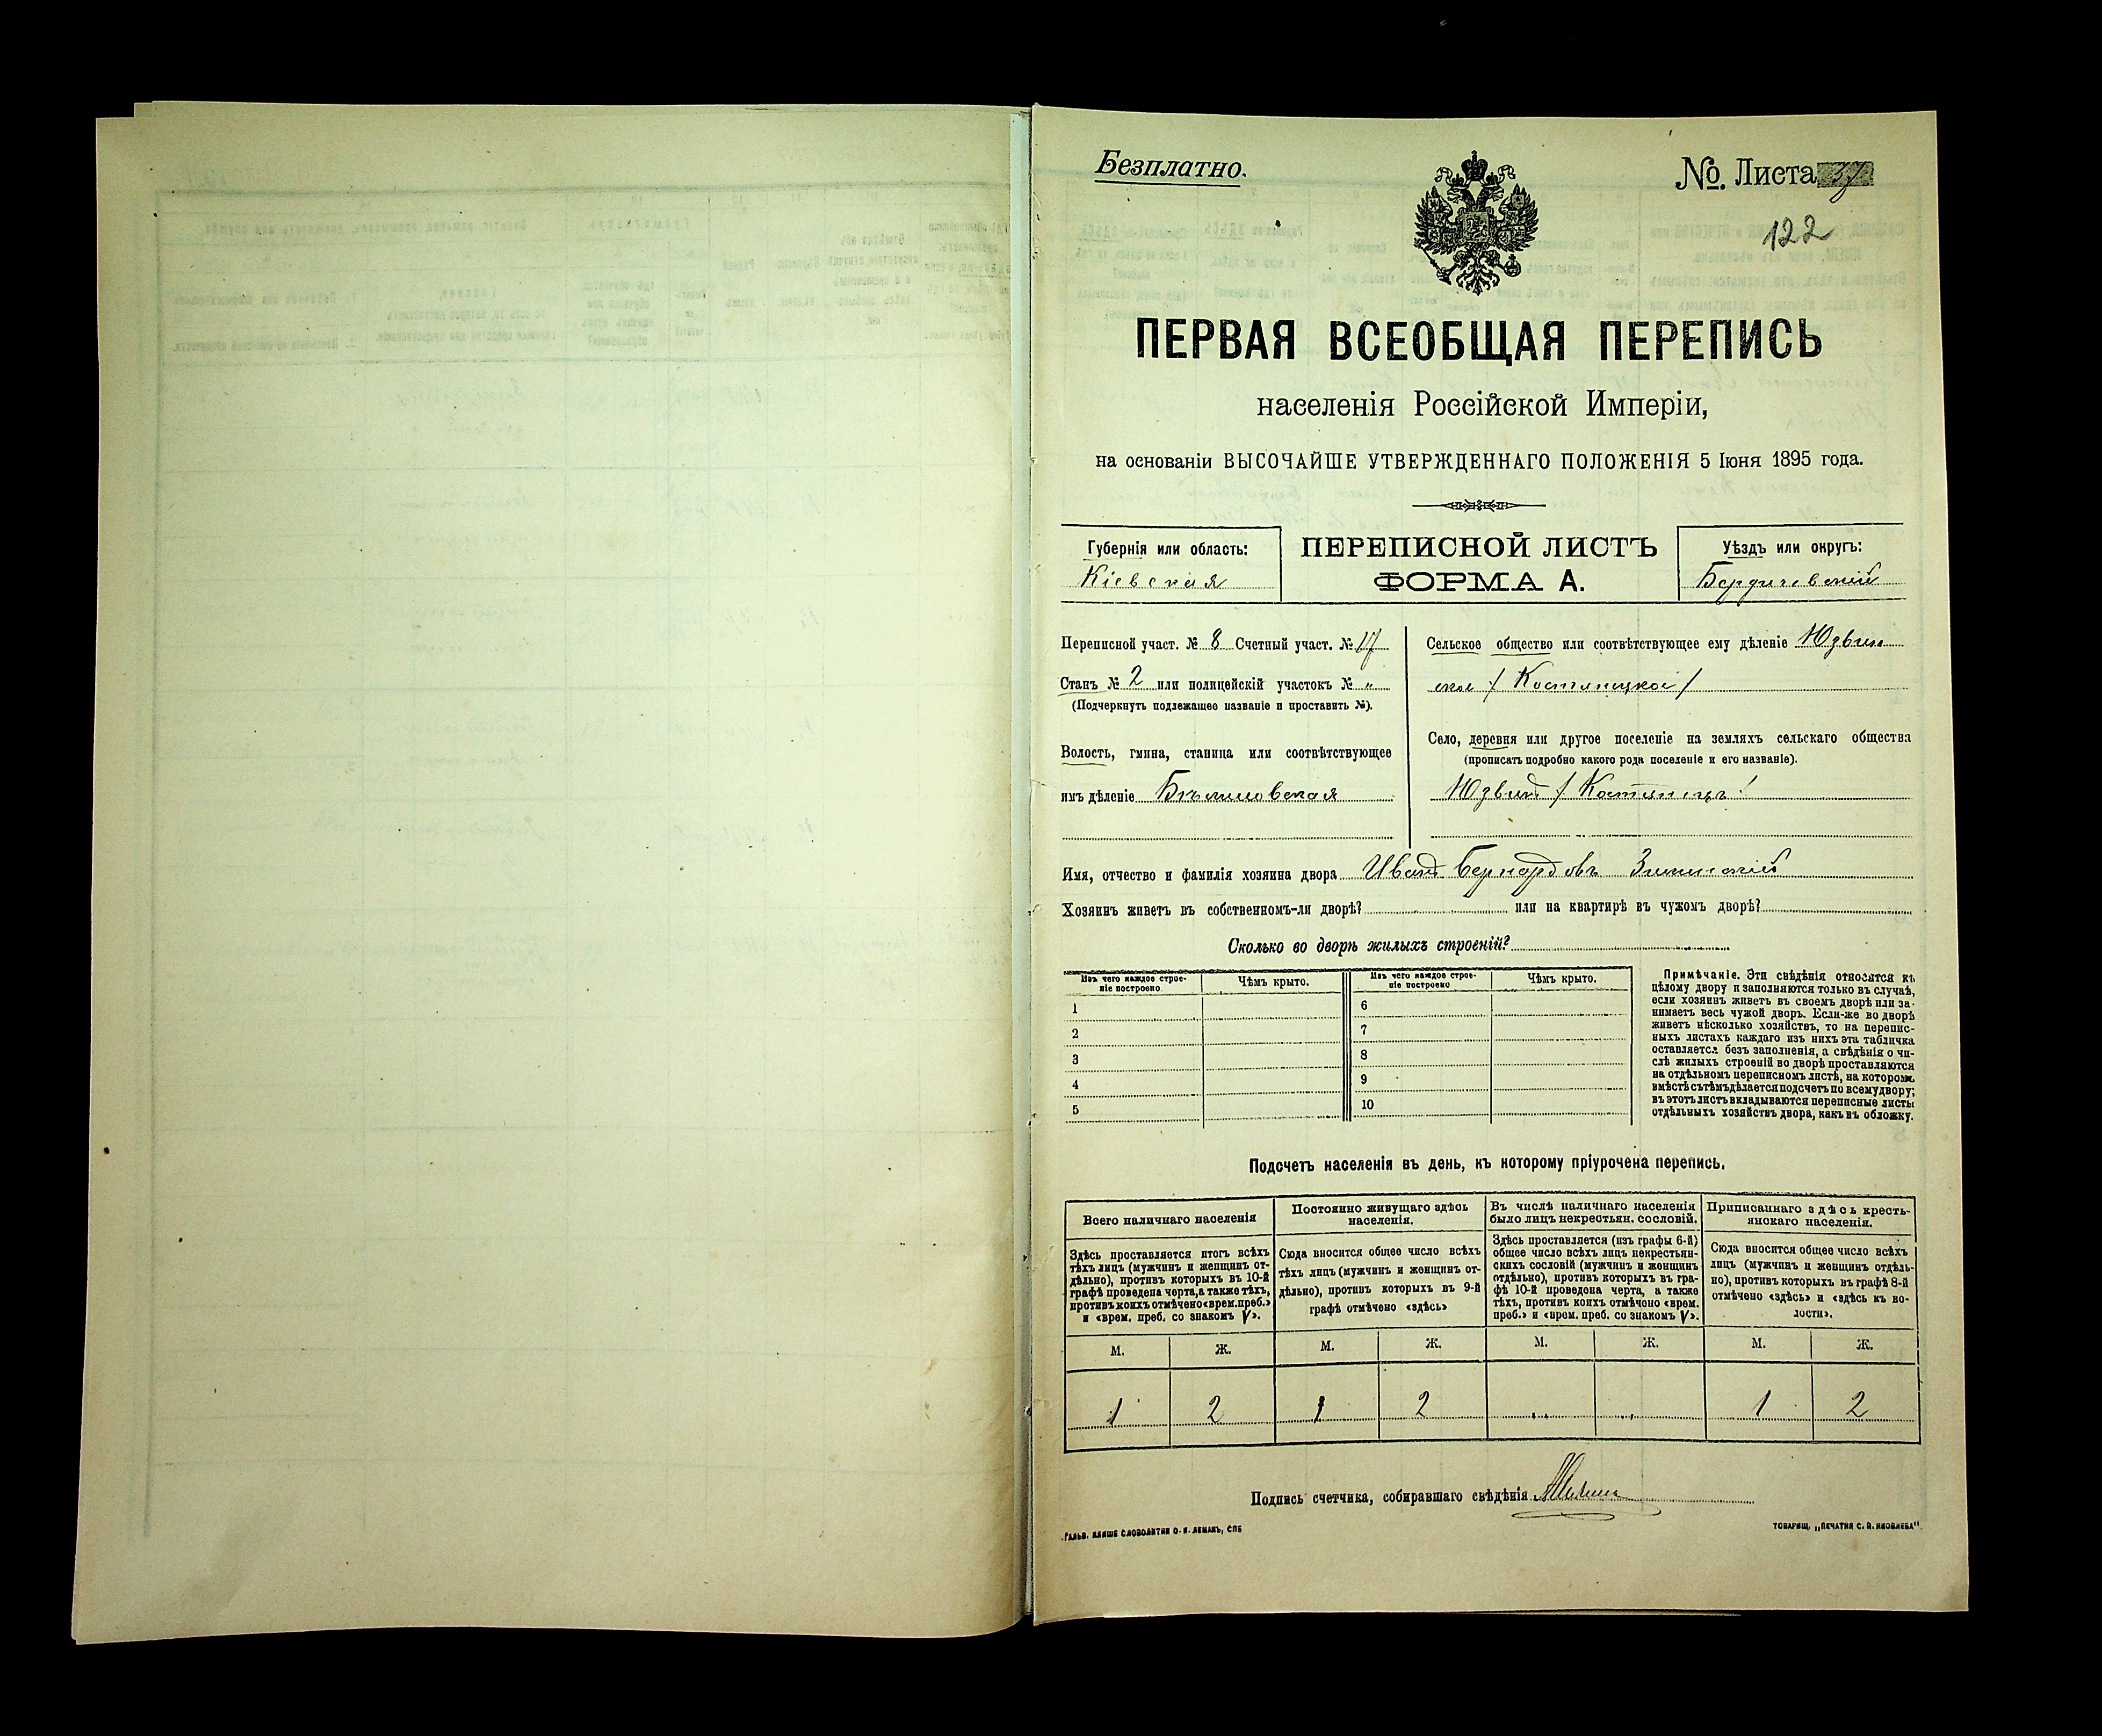 Безплатно.
№. Листа 37
122
ПЕРВАЯ ВСЕОБЩАЯ ПЕРЕПИСЬ
населенія Россійской Имперіи,
на основаніи ВЫСОЧАЙШЕ УТВЕРЖДЕННАГО ПОЛОЖЕНІЯ 5 Іюня 1895 года.
Губернія или область:
Кіевская
ПЕРЕПИСНОЙ ЛИСТЪ
ФОРМА А.
Уѣздъ или округъ:
Бердичевскій
Переписной участ. № 8 Счетный участ. № 17
Станъ № 2 или полицейскій участокъ № „
(Подчеркнуть подлежащее названіе и проставить №).
Волость, гмина, станица или соотвѣтствующее
имъ дѣленіе Бѣлиловская
Сельское общество или соотвѣтствующее ему дѣленіе Юзвин
ское / Костянецкое /
Село, деревня или другое поселеніе на земляхъ сельскаго общества
(прописать подробно какого рода поселеніе и его названіе).
Юзвинъ / Костянецъ /
Имя, отчество и фамилія хозяина двора Иванъ Бернардовъ
Хозяинъ живетъ въ собственномъ-ли дворѣ? или на квартирѣ въ чужомъ дворѣ?
Сколько во дворѣ жилыхъ строеній?
Изъ чего каждое строе-
ніе построено
Чѣмъ крыто.
Изъ чего каждое строе-
ніе построено
Чѣмъ крыто.
1
2
3
4
5
6
7
8
9
10
Примѣчаніе. Эти свѣдѣнія относятся къ
цѣлому двору и заполняются только въ случаѣ,
если хозяинъ живетъ въ своемъ дворѣ или за-
нимаетъ весь чужой дворъ. Если-же во дворѣ
живетъ нѣсколько хозяйствъ, то на перепис-
ныхъ листахъ каждаго изъ нихъ эта табличка
оставляется безъ заполненія, а свѣдѣнія о чи-
слѣ жилыхъ строеній во дворѣ проставляются
на отдѣльномъ переписномъ листѣ, на которомъ
вмѣстѣ съ тѣмъ дѣлается подсчетъ по всему двору;
въ этотъ листъ вкладываются переписные листы
отдѣльныхъ хозяйствъ двора, какъ въ обложку.
Подсчетъ населенія въ день, къ которому пріурочена перепись.
Всего наличнаго населенія
Здѣсь проставляется итогъ всѣхъ
тѣхъ лицъ (мужчинъ и женщинъ от-
дѣльно), противъ которыхъ въ 10-й
графѣ проведена черта, а также тѣхъ,
противъ коихъ отмѣчено «врем. преб.»
и «врем. преб. со знакомъ V».
Постоянно живущаго здѣсь
населенія.
Сюда вносится общее число всѣхъ
тѣхъ лицъ (мужчинъ и женщинъ от-
дѣльно), противъ которыхъ въ 9-й
графѣ отмѣчено «здѣсь»
Въ числѣ наличнаго населенія
было лицъ некрестьян. сословій.
Здѣсь проставляется (изъ графы 6-й)
общее число всѣхъ лицъ некрестьян-
скихъ сословій (мужчинъ и женщинъ
отдѣльно), противъ которыхъ въ гра-
фѣ 10-й проведена черта, а также
тѣхъ, противъ коихъ отмѣчено «врем.
преб.» и «врем. преб. со знакомъ V».
Приписаннаго здѣсь кресть-
янскаго населенія.
Сюда вносится общее число всѣхъ
лицъ (мужчинъ и женщинъ отдѣль-
но), противъ которыхъ въ графѣ 8-й
отмѣчено «здѣсь» и «здѣсь къ во-
лости».
М. Ж. М. Ж. М. Ж. М. Ж.
1 2 1 2 „ „ 1 2
Подпись счетчика, собиравшаго свѣдѣнія
Гальв. клише словолитни О. И. Леманъ, СПБ
Товарищ. „Печатня С. П. Яковлева“.